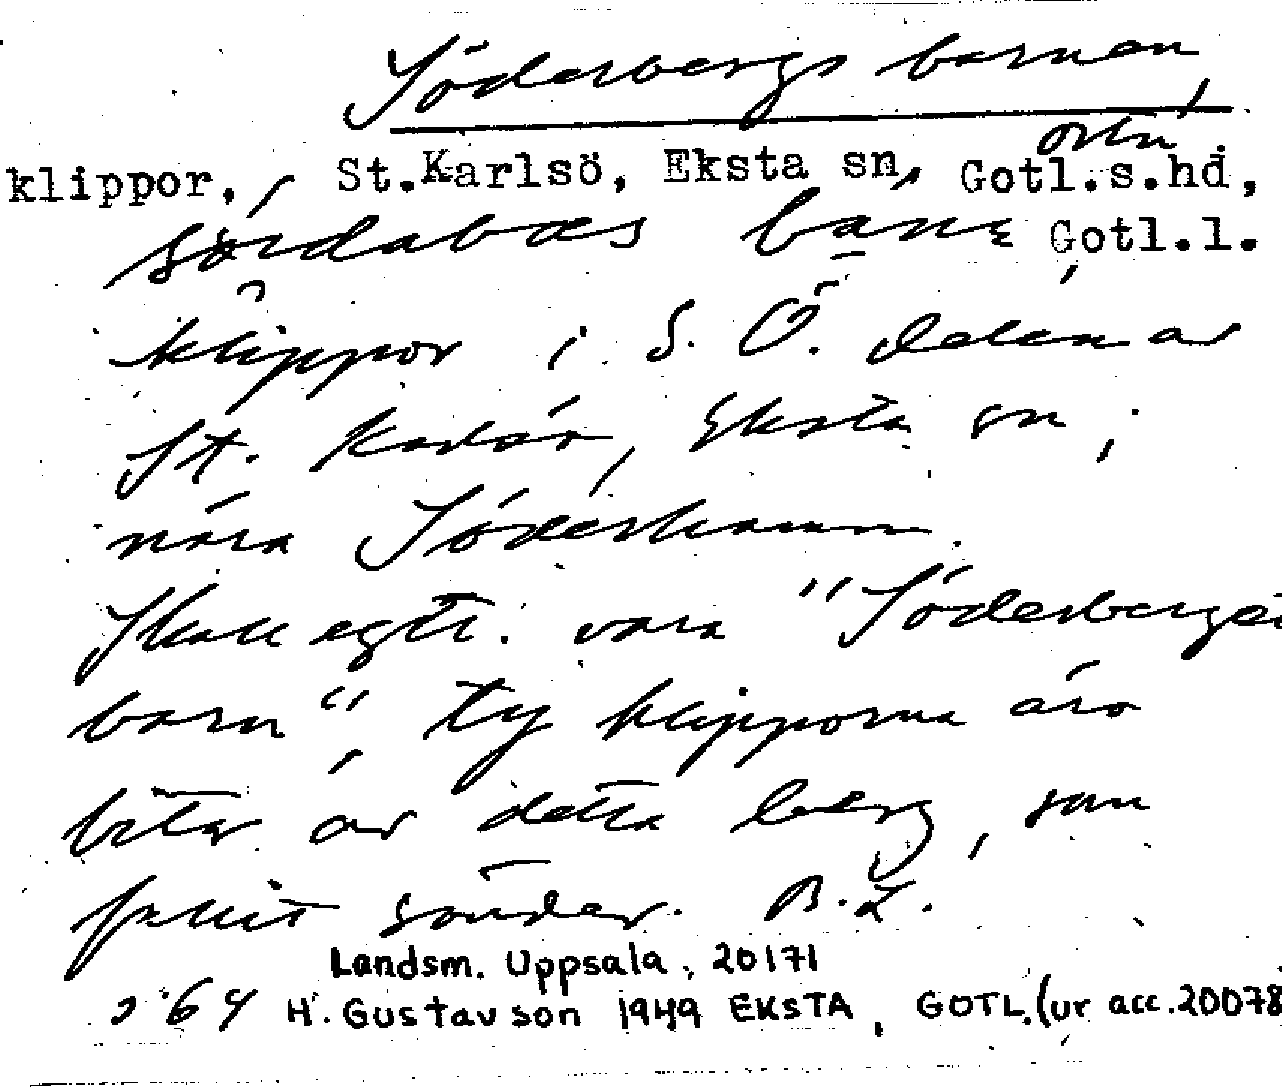 Söderbergs barnen,
ortn.
klippor, St.Karlsö, Eksta sn, Gotl.s.hd,
Gotl.l.
klippor i S. Ö. delen av
St. Karlsö, Eksta sn,
nära Söderhamn.
Skall egtl. vara "Söderbergets
barn", ty klipporna äro
bitar av detta berg, som
fallit sönder. B.L.
Landsm. Uppsala, 20171
H. Gustavson 1949 EKSTA, GOTL. (ur acc. 20078